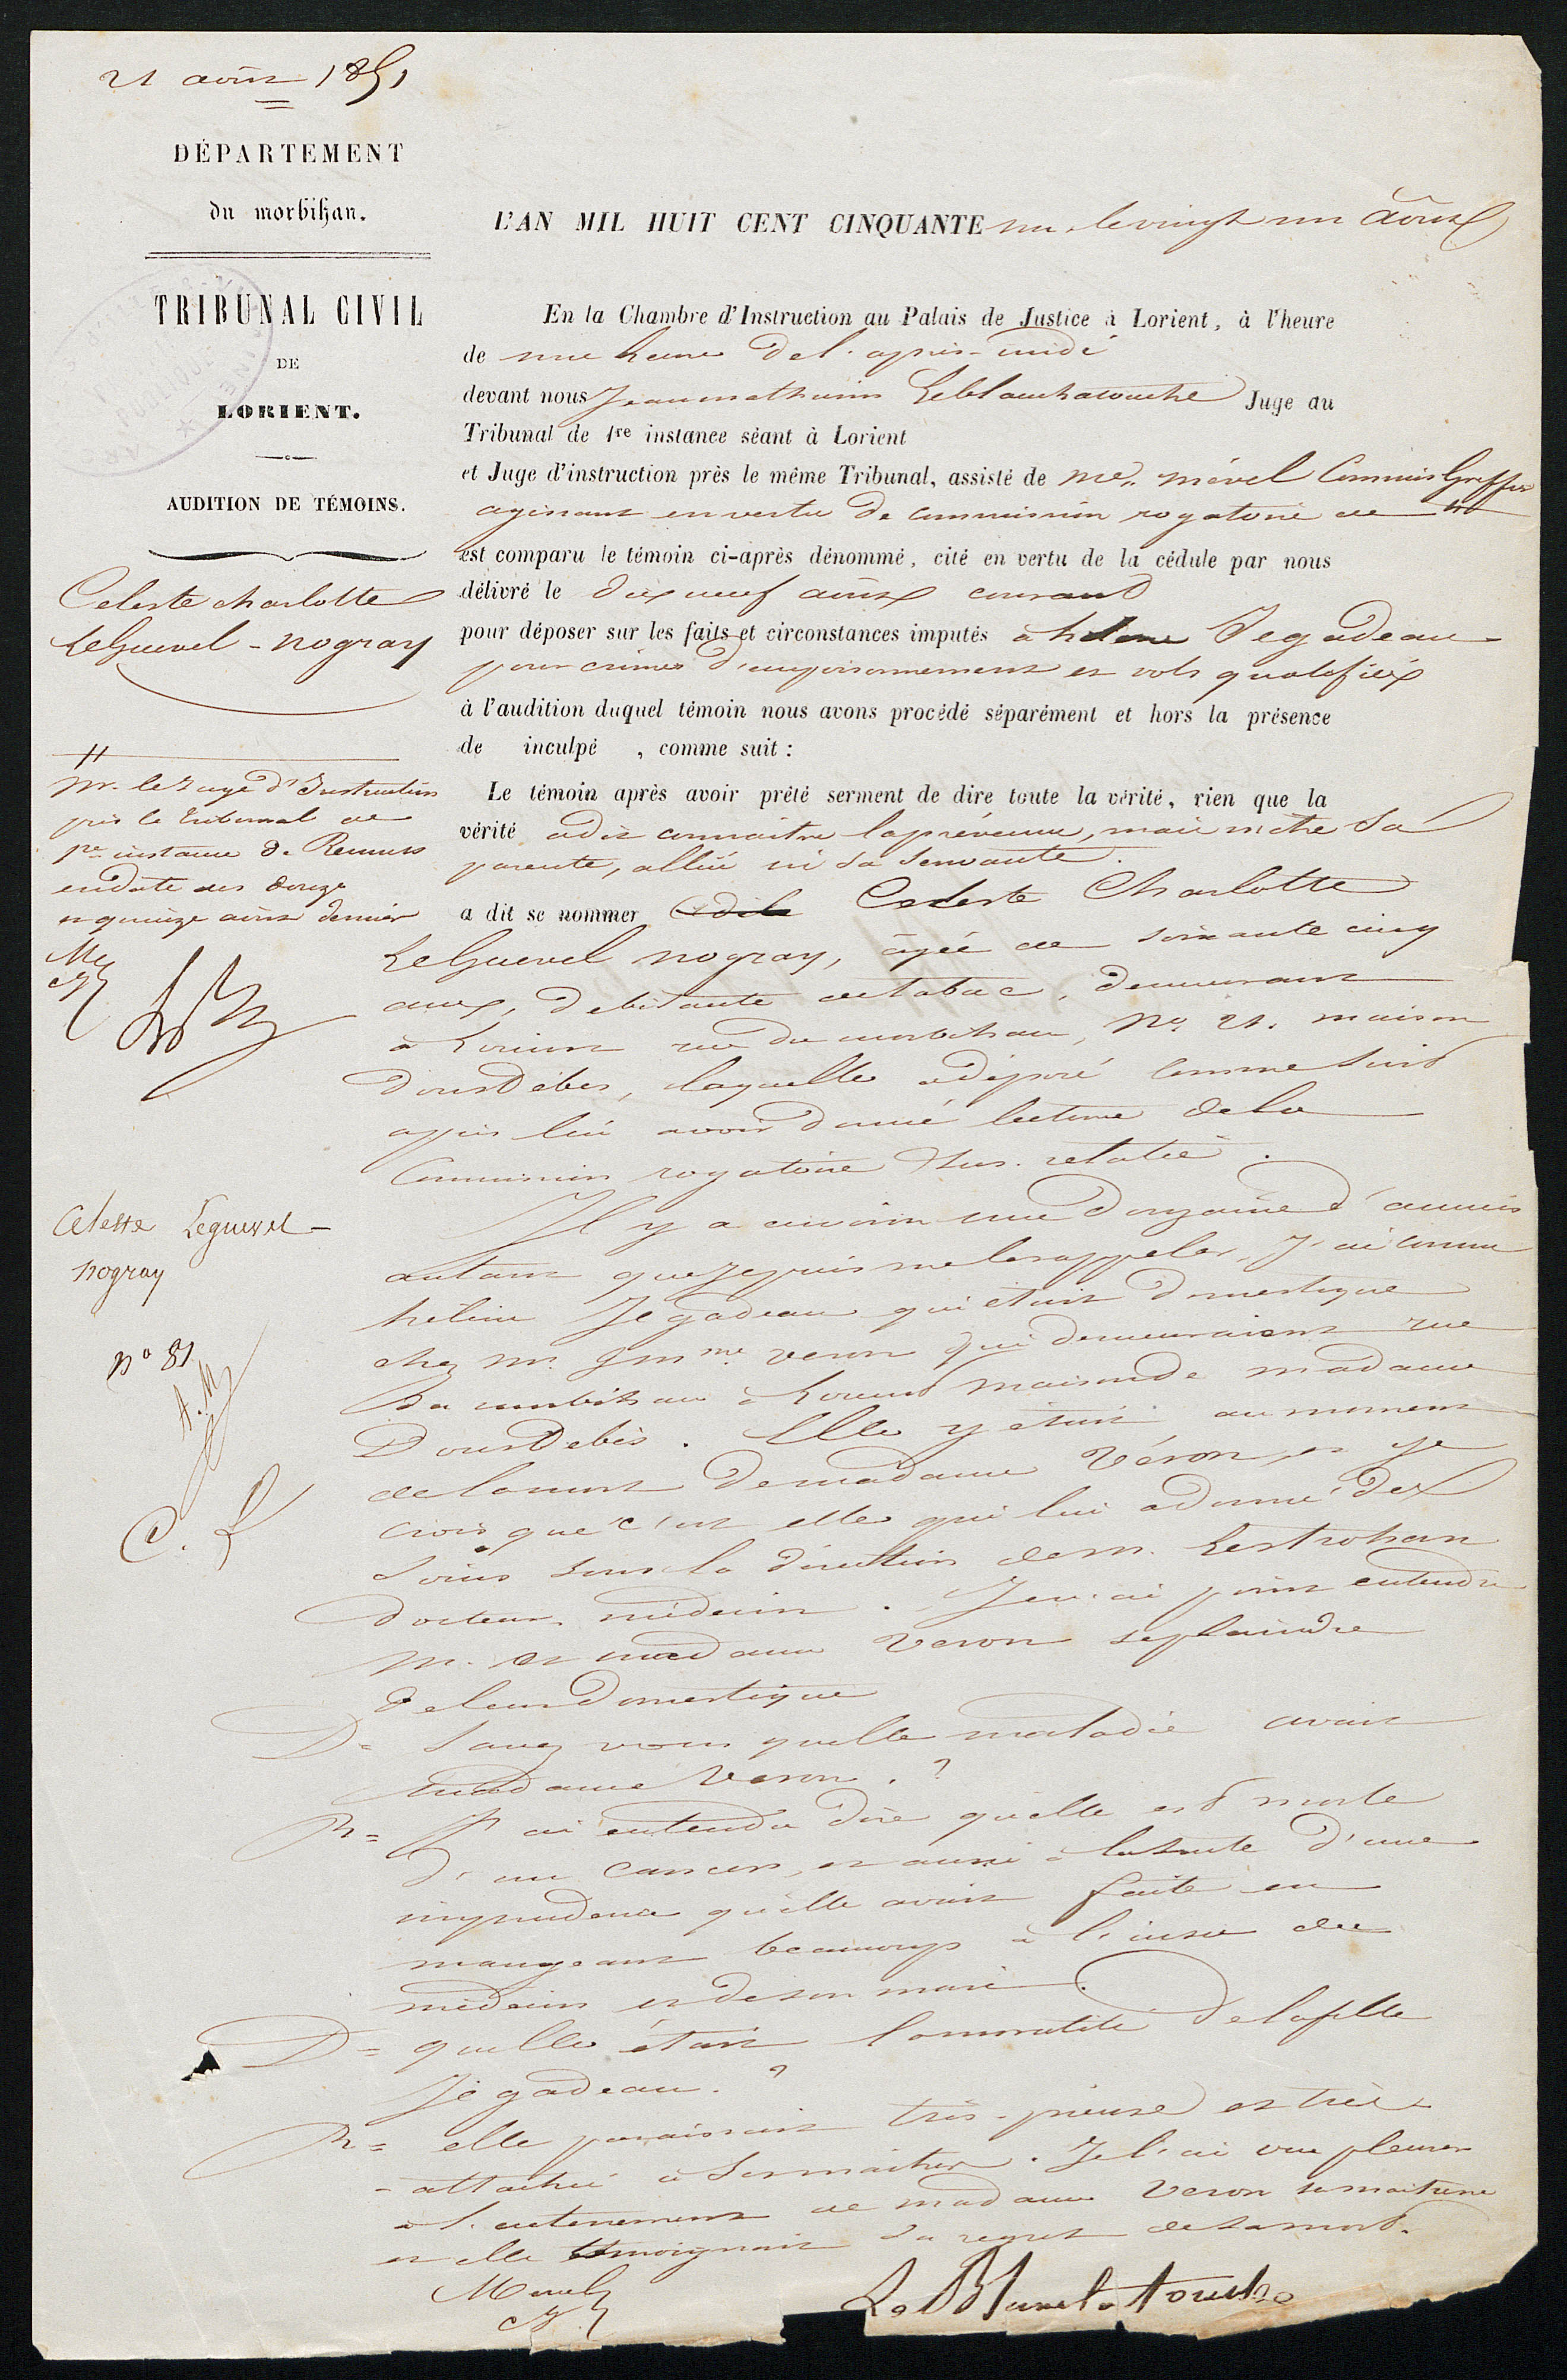 21 août 1851
DÉPARTEMENT
du morbihan.
TRIBUNAL CIVIL
DE
LORIENT.
AUDITION DE TÉMOINS.
Celeste charlotte
LeGuevel - nogray
H
Mr. le Juge d'Instruction
près le tribunal de
1re instance de Rennes
en date des douze
et quinze août dernier
Celeste Leguevel -
nogray
no 81
A. M
C. L
L'AN MIL HUIT CENT CINQUANTE un, le vingt un août
En la Chambre d'Instruction au Palais de Justice à Lorient, à l'heure
de une heure de l'après-midi
devant nous Jean mathurin LeBlanchatouche Juge au
Tribunal de 1re instance séant à Lorient
et Juge d'instruction près le même Tribunal, assisté de Me. mével Commis Greffier
agissant en vertu de commission rogatoire de H
est comparu le témoin ci-après dénommé, cité en vertu de la cédule par nous
délivré le dix neuf août courant
pour déposer sur les faits et circonstances imputés à helene Jegadeau
pour crimes d'empoisonnement et vols qualifiés
à l'audition duquel témoin nous avons procédé séparément et hors la présence
de inculpé , comme suit :
Le témoin après avoir prêté serment de dire toute la vérité, rien que la
vérité a dit connaitre la prévenue, mais n'etre sa
parente, alliée ni sa servante.
a dit se nommer Celeste Charlotte
LeGuevel nogray, âgée de soixante cinq
ans, debitante de tabac, demeurant
à Lorient rue du morbihan, No. 21. maison
Dousdebes, laquelle a déposé comme suit
après lui avoir donné lecture de la
Commission rogatoire sus. relatée.
Il y a environ une douzaine d'années
autant que je puis me le rappeler, J'ai connu
hélène Jegadeau qui était domestique
chez mr. & mme veron qui demeuraient rue
du morbihan à Lorient maison de madame
Dousdebès. Elle y était au moment
de la mort de madame Véron, et je
crois que c'est elle qui lui a donné des
soins sous la direction de m. Lestrohan
docteur médecin. Je n'ai point entendu
m. et madame veron se plaindre
de leur domestique
D = Savez vous quelle maladie avait
madame Veron. ?
R = J'ai entendu dire qu'elle est morte
d'un cancer, et aussi à la suite d'une
imprudence qu'elle avait faite en
mangeant beaucoup à l'insu du
médecin et de son mari.
D = quelle était la moralité de la fille
Jégadeau. ?
R = elle paraissait très-pieuse et très
-attachée à ses maitres. Je l'ai vue pleurer
à l'enterrement de madame Veron sa maitresse
et elle témoignait du regret de sa mort.
Mevel
LeBlanchatouche